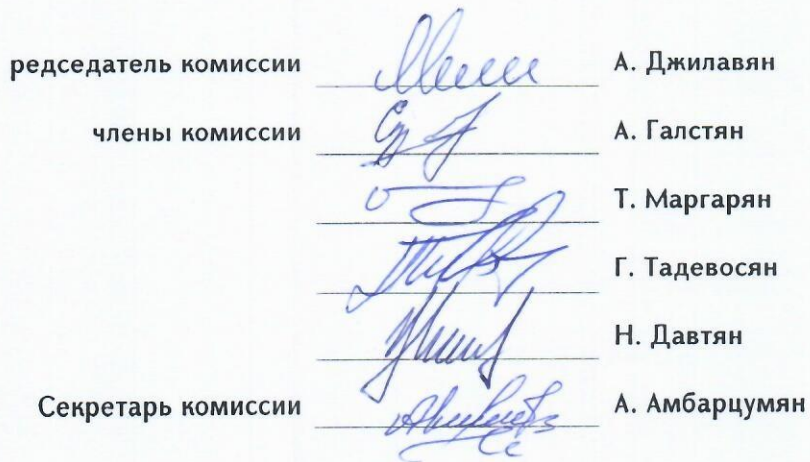 редседатель комиссии А. Джилавян
члены комиссии А. Галстян
Т. Маргарян
Г. Тадевосян
Н. Давтян
Секретарь комиссии А. Амбарцумян